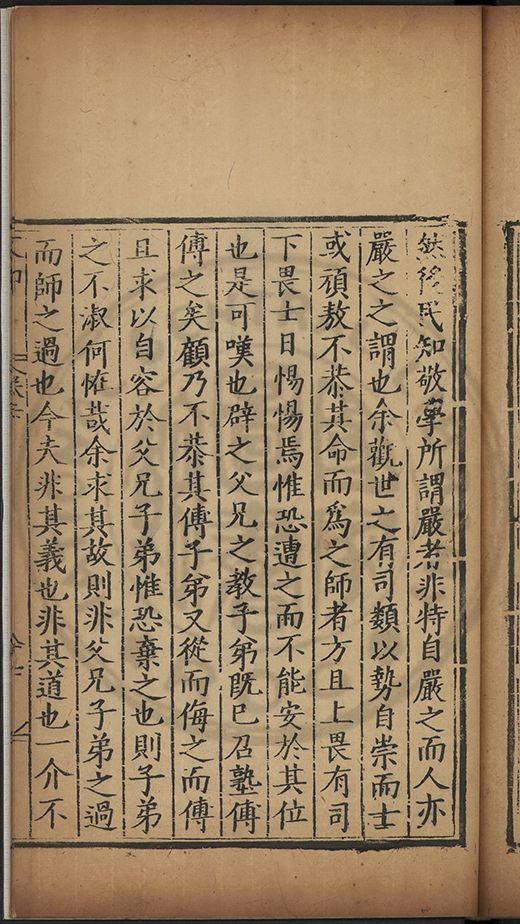 然後民知敬學所謂嚴者非特自嚴之而人亦
嚴之之謂也余觀世之有司類以勢自崇而士
或頑敖不恭其命而爲之師者方且上畏有司
下畏士日惕惕焉惟恐遭之而不能安於其位
也是可嘆也辟之父兄之教子弟既已召塾傅
傅之矣顧乃不恭其傅子弟又從而侮之而傅
且求以自容於父兄子弟惟恐棄之也則子弟
之不淑何恠哉余求其故則非父兄子弟之過
而師之過也今夫非其義也非其道也一介不